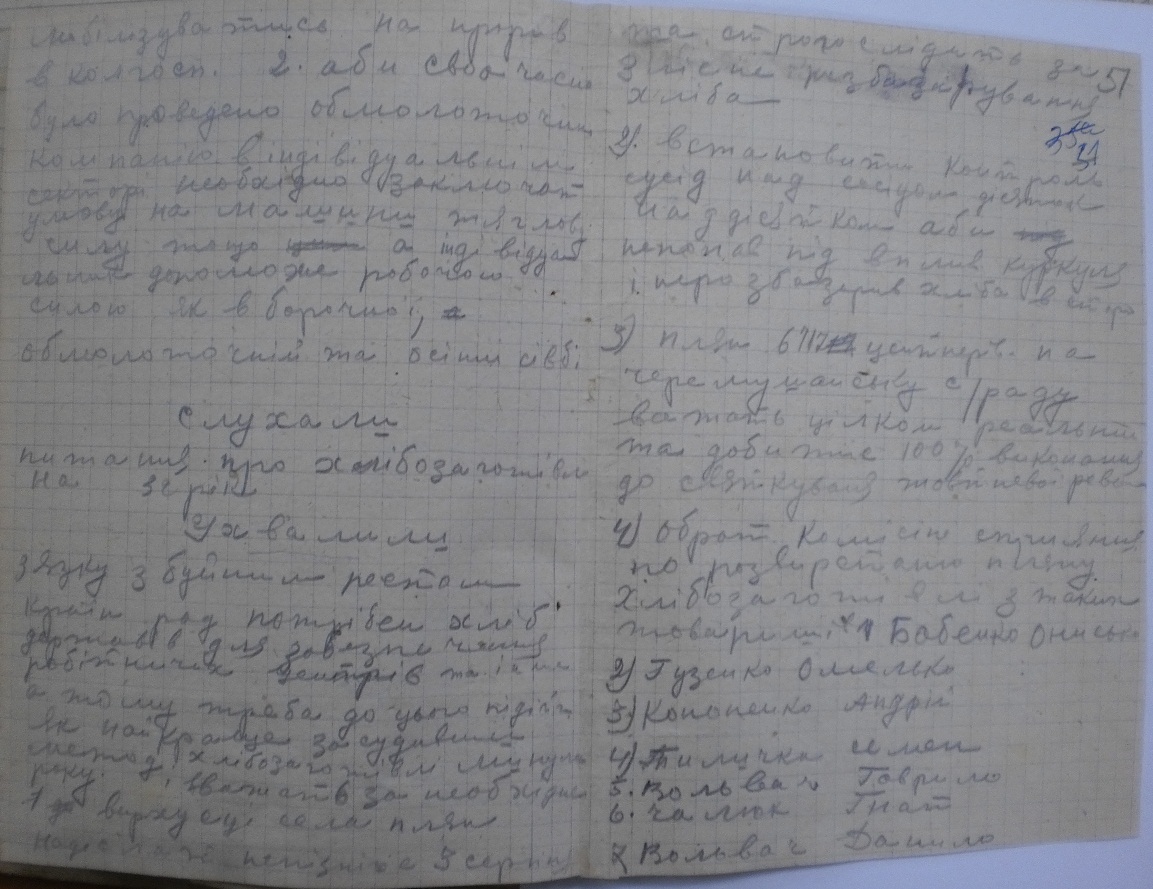 мобілізуватись на прорив
в колгосп. 2. аби своєчасно
було проведено обмолоточни
компанію в індівідуальнім
секторі необхідно заключат
умову на машини тяглов
силу тощо а інді відуал
льний допоможе робочою
силою як в борочної,
обмолоточній та осінни сівбі.
Слухали
питання про хлібозаготівлю
на рік
Ухвалили
звязку з буйним ростом
Країн рад потрібен хліб
державі для забезпечення
робітничих центрів та
а тому треба до цього підійти
як найкраще засудивши
метод хлібозаготівлі минуло
року. вважать за необхідне
1 верхусі села плян
надіслати непізніше 3 серпня
та строго слідить за
розбазарування
хліба
51
2). Встановити контроль
сусід над сусідом десятник
над десятком аби
непопав під вплив куркуля
і нерозбазарив хліба в сторо
3) Плян центнерів на
черемушанську с/раду
важать цілком реальним
та добитись 100% виконання
до святкування жовтневої рево
4) Обрат комісію сприяння
по розверстанню пляну
хлібозаготівлі з таких
товаришів 1 Бабенко Онисько
2) Гузенко Омелько
3) Кононенко Андрій
4) Тиличка Семен
5. Вольвач Гаврило
6. Чалюк Гнат
7 Вольвач Данило